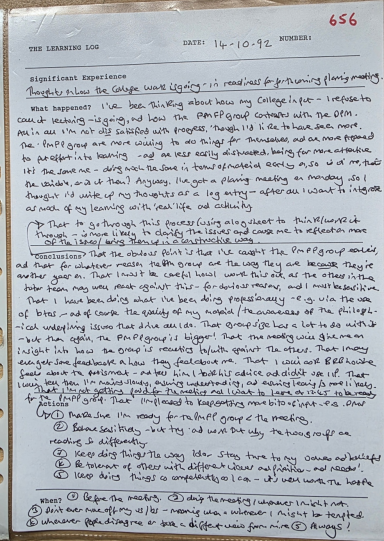 656
THE LEARNING LOG DATE: 14-10-92 NUMBER:
Significant Experience
Thoughts on how the College work is going - in readiness for forthcoming planning meeting.
What happened? I've been thinking about how my College input - I refuse to
call it lecturing - is going, and how the PMFP group contrasts with the DPM.
All in all I'm not dissatisfied with progress, though I'd like to have seen more.
The PMFP group are more willing to do things for themselves, and are more prepared
to put effort into learning - and are less easily distracted, being far more attentive
It's the same me - doing much the same in terms of material
Anyway, I've got a planning meeting on Monday, so I
thought I'd write up my thoughts as a log entry - after all I want to integrate
as much of my learning with real life and activity
That to go through this process (using a log sheet to think/work it
through - is more likely to clarify the issues and cause me to reflect on more
of the issues / bring them up in a constructive way
Conclusions? That the obvious point is that I've caught the PMFP group earlier,
and that for whatever reason, the group are the way they are because they're
another year on. That I must be careful how I work this out, as the others in the
tutor team may well react against this - for obvious reasons, and I must be sensitive.
That I have been doing what I've been doing professionally - e.g. via the use
of and of course the quality of my material / the awareness of the philosoph-
-ical underlying issues that drive all I do. That group size has a lot to do with it
- but then again, the PMFP group is bigger! That the meeting will give me an
insight into how the group is reacting
feels about the and tell him I took his advice and didn't use it. That
ensuring understanding, and ensuring learning is more likely.
That I'm not getting paid for the meeting and I want to leave at to be ready
for the PMFP group. That I'm pleased to keep getting more bits of input
Actions
① Make sure I'm ready for the PMFP group & the meeting.
② Behave sensitively - but try and work out why the two groups are
reacting so differently.
③ Keep doing things the way I do - stay true to my values and beliefs
④ Be tolerant of others with different views and priorities - and needs!
⑤ Keep doing things as competently as I can - it's well worth the hassle
When? ① Before the meeting. ② during the meeting / whenever I might not.
③ Don't ever move off my - meaning when & wherever I might be tempted.
④ Whenever people disagree or take a different view from mine ⑤ Always!